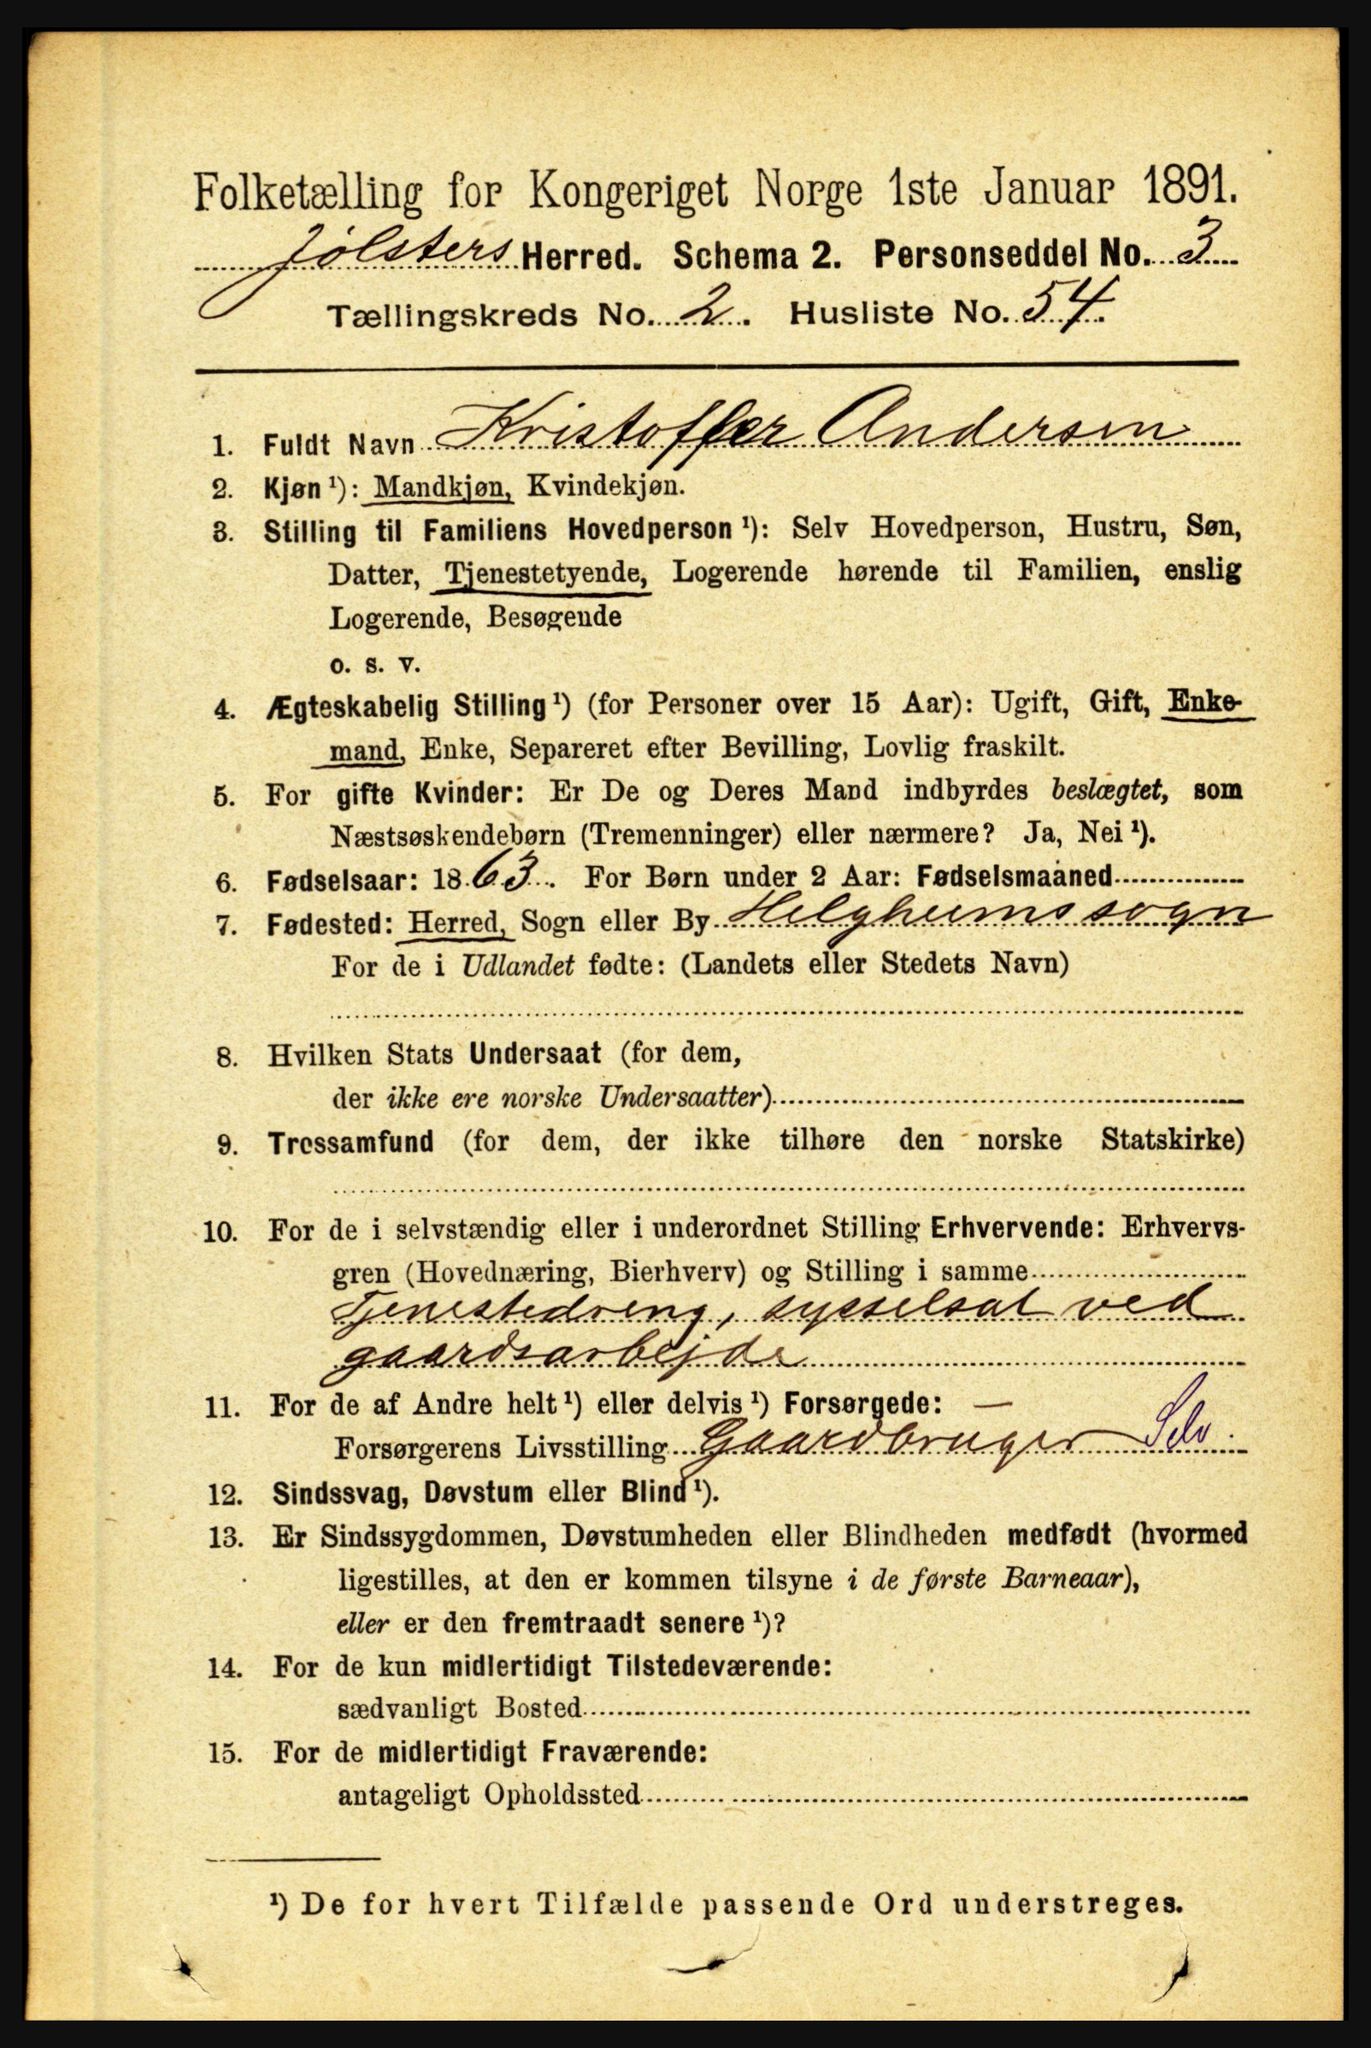 Folketælling for Kongeriget Norge 1ste Januar 1891.
Jølsters Herred. Schema 2. Personseddel No. 3
Tællingskreds No. 2. Husliste No. 54.
1. Fuldt Navn Kristoffer Andersen
2. Kjøn¹): Mandkjøn, Kvindekjøn.
3. Stilling til Familiens Hovedperson¹): Selv Hovedperson, Hustru, Søn,
Datter, Tjenestetyende, Logerende hørende til Familien, enslig
Logerende, Besøgende
o. s. v.
4. Ægteskabelig Stilling¹) (for Personer over 15 Aar): Ugift, Gift, Enke-
mand, Enke, Separeret efter Bevilling, Lovlig fraskilt.
5. For gifte Kvinder: Er De og Deres Mand indbyrdes beslægtet, som
Næstsøskendebørn (Tremenninger) eller nærmere? Ja, Nei¹).
6. Fødselsaar: 1863. For Børn under 2 Aar: Fødselsmaaned
7. Fødested: Herred, Sogn eller By Helgheims sogn
For de i Udlandet fødte: (Landets eller Stedets Navn)
8. Hvilken Stats Undersaat (for dem,
der ikke ere norske Undersaatter)
9. Trossamfund (for dem, der ikke tilhøre den norske Statskirke)
10. For de i selvstændig eller i underordnet Stilling Erhvervende: Erhvervs-
gren (Hovednæring, Bierhverv) og Stilling i samme
Tjenestedreng, sysselsat ved
gaardsarbejde
11. For de af Andre helt¹) eller delvis¹) Forsørgede: —
Forsørgerens Livsstilling Gaardbruger Selv
12. Sindssvag, Døvstum eller Blind¹).
13. Er Sindssygdommen, Døvstumheden eller Blindheden medfødt (hvormed
ligestilles, at den er kommen tilsyne i de første Barneaar),
eller er den fremtraadt senere¹)?
14. For de kun midlertidigt Tilstedeværende:
sædvanligt Bosted
15. For de midlertidigt Fraværende:
antageligt Opholdssted
¹) De for hvert Tilfælde passende Ord understreges.